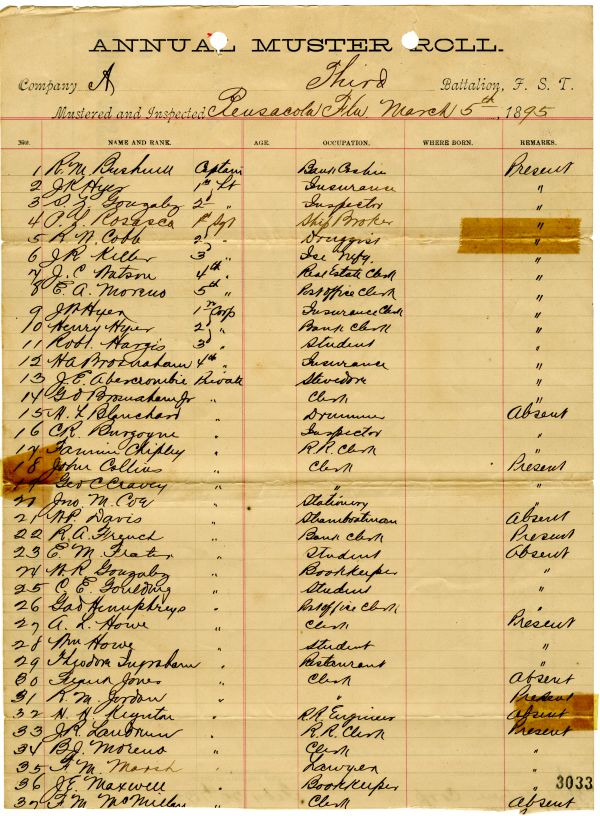 ANNUAL MUSTER ROLL.
Company A Third Battalion, F. S. T.
Mustered and Inspected Pensacola Fla March 5th, 1895
No. NAME AND RANK. AGE. OCCUPATION. WHERE BORN. REMARKS.
1 R. M. Bushnell Captain Bank Cashier Present
2 J R Hyer 1st Lt Insurance "
3 S. Z. Gonzalez 2 " Inspector "
4 Rosasco 1st Sgt Ship Broker "
5 R. N. Cobb 2 " Druggist "
6 J R Keller 3 " Ice Mfg. "
7 J. C Watson 4th " Real Estate Clerk "
8 E. A. Moreno 5th " Post office Clerk "
9 Hyer 1 Corp Insurance Clerk "
10 Henry Hyer 2 " Bank Clerk "
11 Robt Hargis 3 " Student "
12 H A Brosnaham 4th " Insurance "
13 J. E. Abercrombie Private Stevedore "
14 G D Brosnaham Jr " Clerk "
15 Blanchard " Drummer Absent
16 C R. Burgoyne " Inspector "
17 Fannin Chipley " R. R. Clerk "
18 John Collins " Clerk Present
19 Geo C Cravey " " "
2 Jno. M. Coe " Stationery "
21 Davis " Steamboatman Absent
22 R. A. French " Bank Clerk Present
23 E. M. Frater " Student Absent
24 Gonzalez " Bookkeeper "
25 C. E. Goulding " Student "
26 Gad Humphreys " Post office Clerk "
27 A. L. Howe " Clerk Present
28 Wm Howe " Student "
29 Theodore Ingraham " Restaurant "
30 Jones " Clerk Absent
31 R. M. Jordan " " Present
32 " R R Engineer Absent
33 J. R. Landrum " R. R. Clerk Present
34 B. J. Moreno " Clerk "
35 F. M. Marsh " Lawyer "
36 J. E. Maxwell " Bookkeeper "
37 F. M. McMillan " Clerk Absent
3033